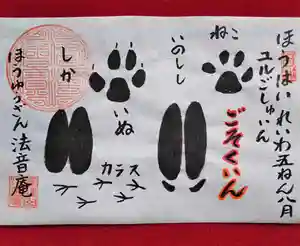 ほうはい れいわ五ねん八月
ユルごしゅいん
ねこ
ごそくいん
いのしし
いぬ
カラス
しか
ほうゅうざん 法音庵